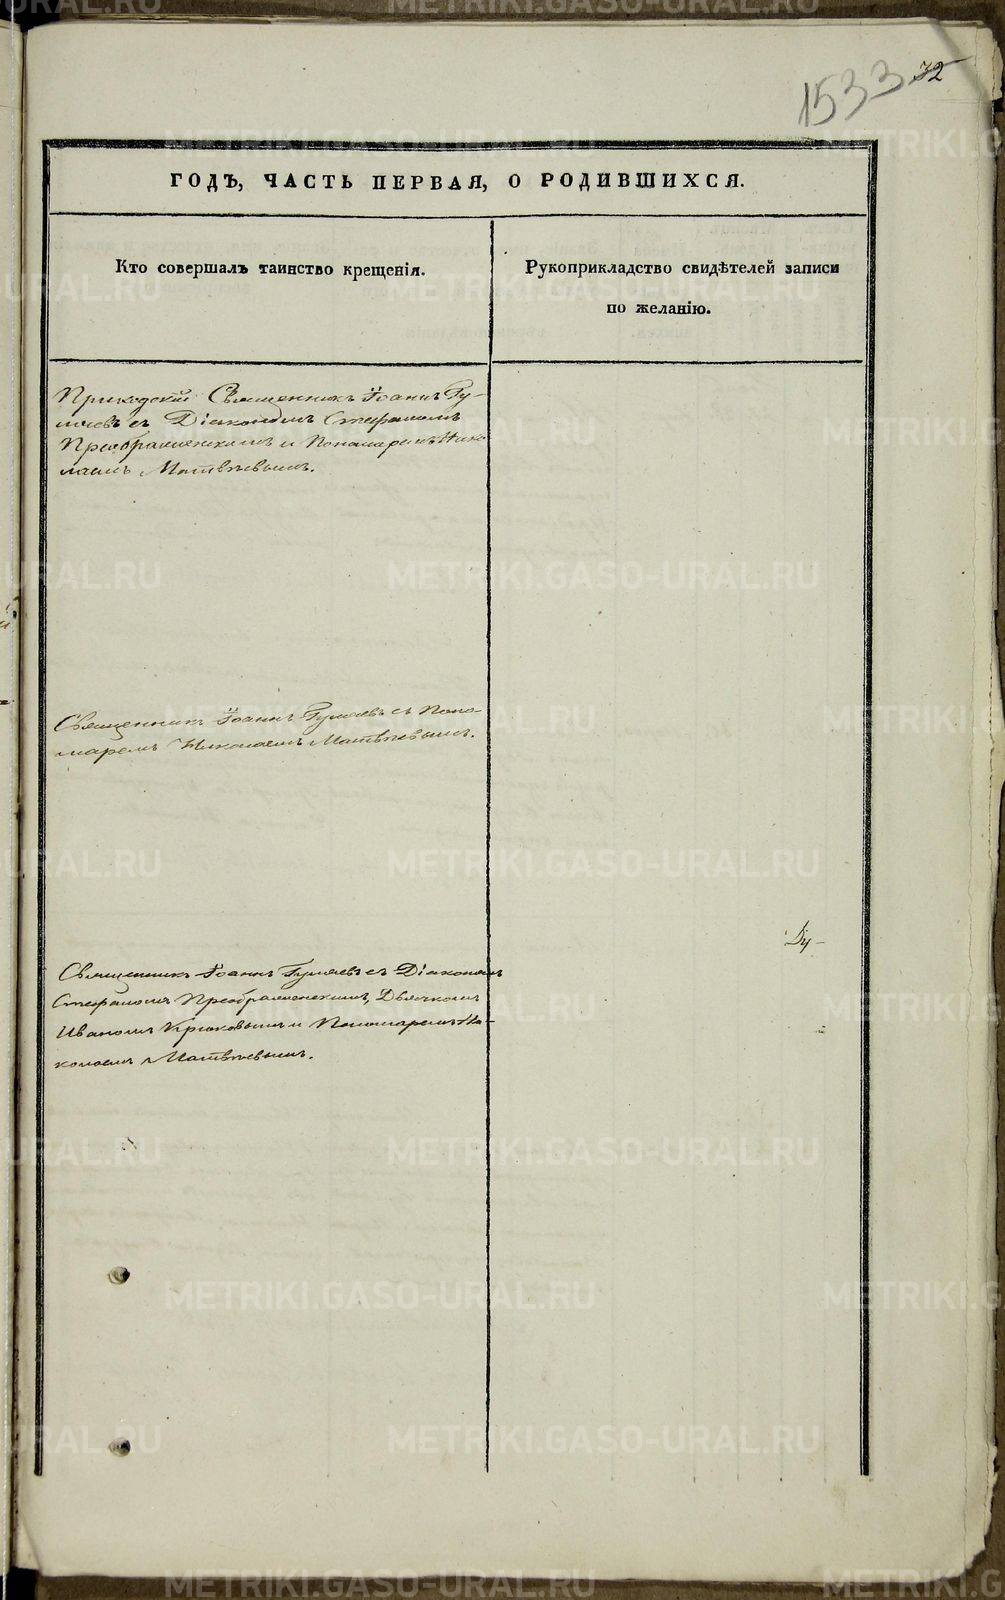 1533 32
ГОДЪ, ЧАСТЬ ПЕРВАЯ, О РОДИВШИХСЯ.
Кто совершалъ таинство крещенія.
Рукоприкладство свидѣтелей записи
по желанію.
Приходскій Священникъ Іоаннъ Гу-
ляевъ съ Діакономъ Стефаномъ
Преображенскимъ и Пономаремъ Нико
лаемъ Матвѣевымъ.
Священникъ Іоаннъ Гуляевъ съ Поно-
маремъ Николаемъ Матвѣевымъ.
Ду-
Священникъ Іоаннъ Гуляевъ съ Діакономъ
Стефаномъ Преображенскимъ, Дьячкомъ
Иваномъ Крюковымъ и Пономаремъ Ни-
колаемъ Матвѣевымъ.
METRIKI.GASO-URAL.RU